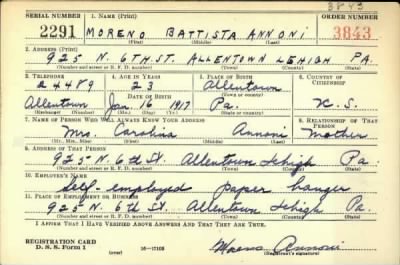 3843
SERIAL NUMBER 1. NAME (Print) ORDER NUMBER
2291 MORENO BATTISTA ANNONI 3843
(First) (Middle) (Last)
2. ADDRESS (Print)
925 N. 6TH ST. ALLENTOWN LEHIGH PA.
(Number and street or R. F. D. number) (Town) (County) (State)
3. TELEPHONE 4. AGE IN YEARS 5. PLACE OF BIRTH 6. COUNTRY OF CITIZENSHIP
24489 23 Allentown
DATE OF BIRTH (Town or county)
Allentown Jan. 16 1917 Pa. U.S.
(Exchange) (Number) (Mo.) (Day) (Yr.) (State or country)
7. NAME OF PERSON WHO WILL ALWAYS KNOW YOUR ADDRESS 8. RELATIONSHIP OF THAT PERSON
Mrs. Carolina Annoni Mother
(Mr., Mrs., Miss) (First) (Middle) (Last)
9. ADDRESS OF THAT PERSON
925 N. 6th St. Allentown Lehigh Pa.
(Number and street or R. F. D. number) (Town) (County) (State)
10. EMPLOYER'S NAME
Self-employed paper hanger
11. PLACE OF EMPLOYMENT OR BUSINESS
925 N. 6th St. Allentown Lehigh Pa.
(Number and street or R. F. D. number) (Town) (County) (State)
I AFFIRM THAT I HAVE VERIFIED ABOVE ANSWERS AND THAT THEY ARE TRUE.
REGISTRATION CARD
D. S. S. Form 1 (over) 16—17105 Moreno Annoni
(Registrant's signature)